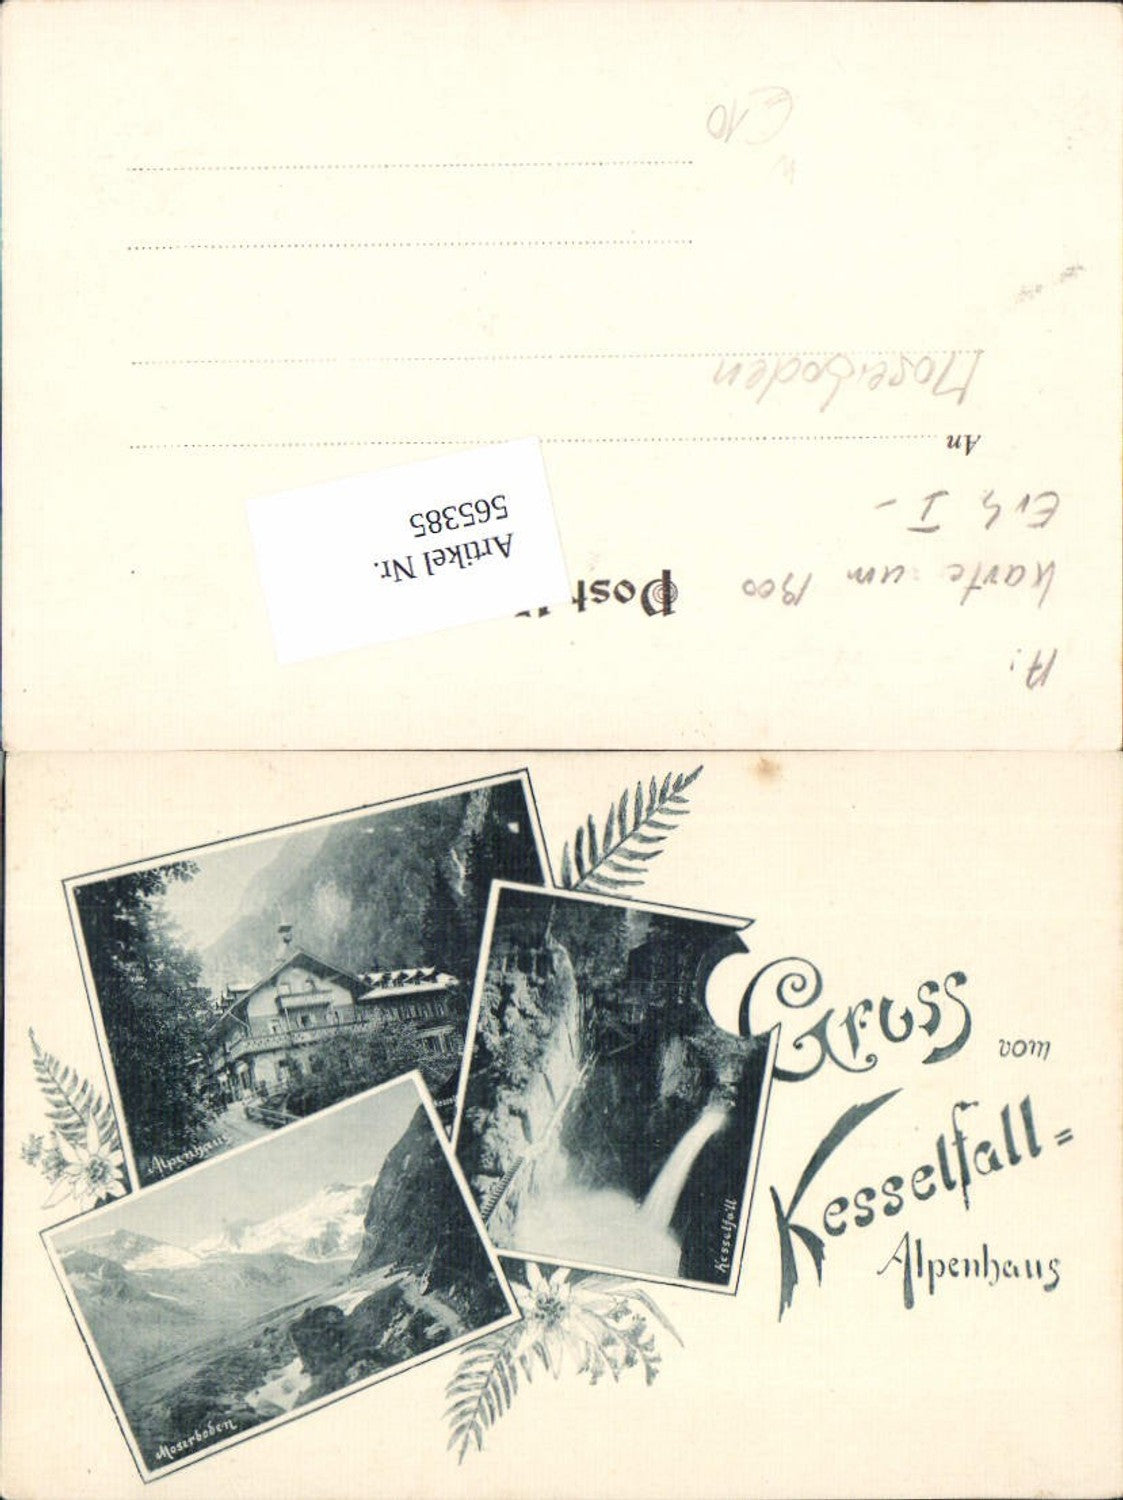 €10
Moserboden
An
Erh I-
Artikel Nr.
565385
Karte um 1900
Post
A:
Gruss
vom
Kesselfall=
Alpenhaus
Alpenhaus
Kesselfall
Moserboden